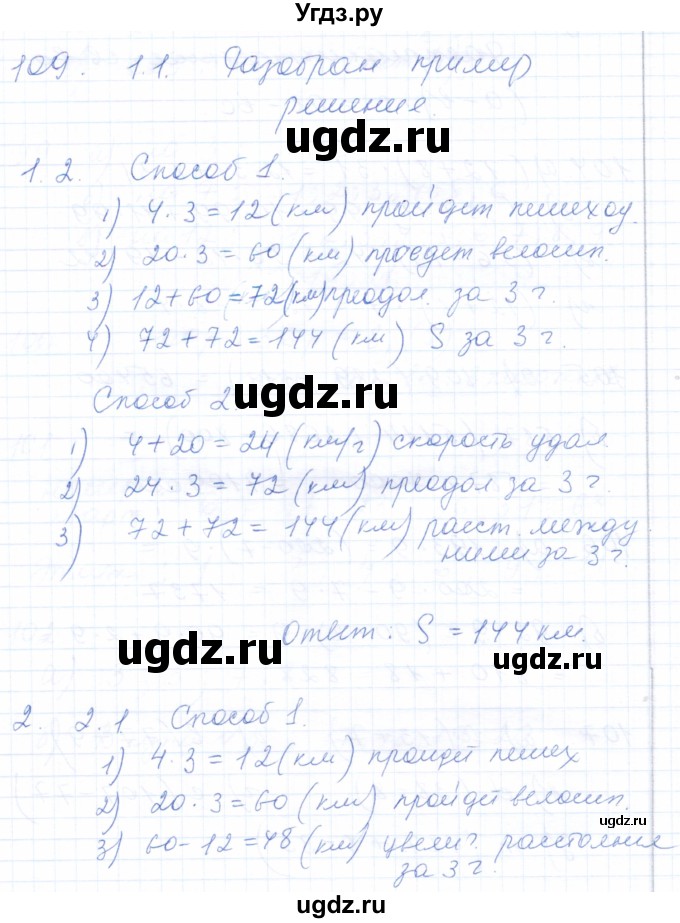 Угдз.ру
109. 1.1. Разобран пример
решения.
ugdz.ru
1.2. Способ 1.
1) 4·3=12(км) пройдет пешеход.
2) 20·3=60(км) проедет велосип.
3) 12+60=72(км) преодол. за 3 г.
4) 72+72=144(км) S за 3 г.
ugdz.ru
Способ 2.
1) 4+20=24(км/г) скорость удал.
2) 24·3=72(км) преодол за 3 г.
3) 72+72=144(км) расст. между
ними за 3 г.
ugdz.ru
Ответ: S=144 км.
ugdz.ru
2. 2.1 Способ 1.
1) 4·3=12(км) пройдет пешех
2) 20·3=60(км) пройдет велосип.
3) 60-12=48(км) увелич. расстояние
за 3 г.
ugdz.ru
ugdz.ru